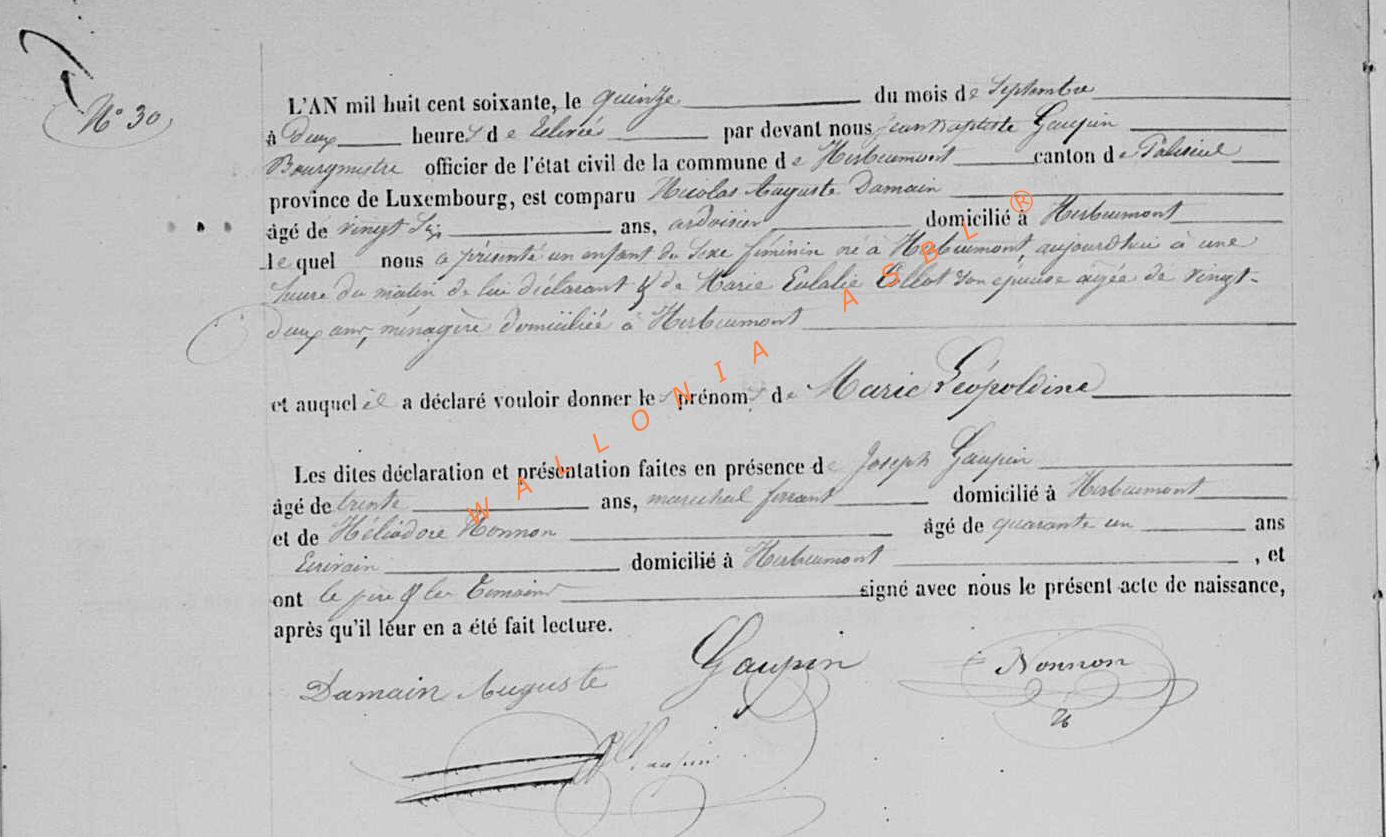 N° 30
L'AN mil huit cent soixante, le quinze du mois de Septembre
à deux heures de relevée par devant nous Jean Baptiste Gaupin
Bourgmestre officier de l'état civil de la commune de Herbeumont canton de Paliseul
province de Luxembourg, est comparu Nicolas Auguste Damain
âgé de vingt six ans, ardoisier domicilié à Herbeumont
lequel nous a présenté un enfant du sexe féminin né à Herbeumont, aujourd'hui à une
heure du matin de lui déclarant & de Marie Eulalie Collot son épouse agée de vingt-
deux ans, ménagère domiciliée à Herbeumont
et auquel il a déclaré vouloir donner les prénoms de Marie Léopoldine
Les dites déclaration et présentation faites en présence de Joseph Gaupin
âgé de trente ans, marechal ferrant domicilié à Herbeumont
et de Héliodore Nonnon âgé de quarante un ans
Ecrivain domicilié à Herbeumont , et
ont le père & les temoins signé avec nous le présent acte de naissance,
après qu'il leur en a été fait lecture.
Damain Auguste Gaupin Nonnon
Gaupin
WALLONIA ASBL ®